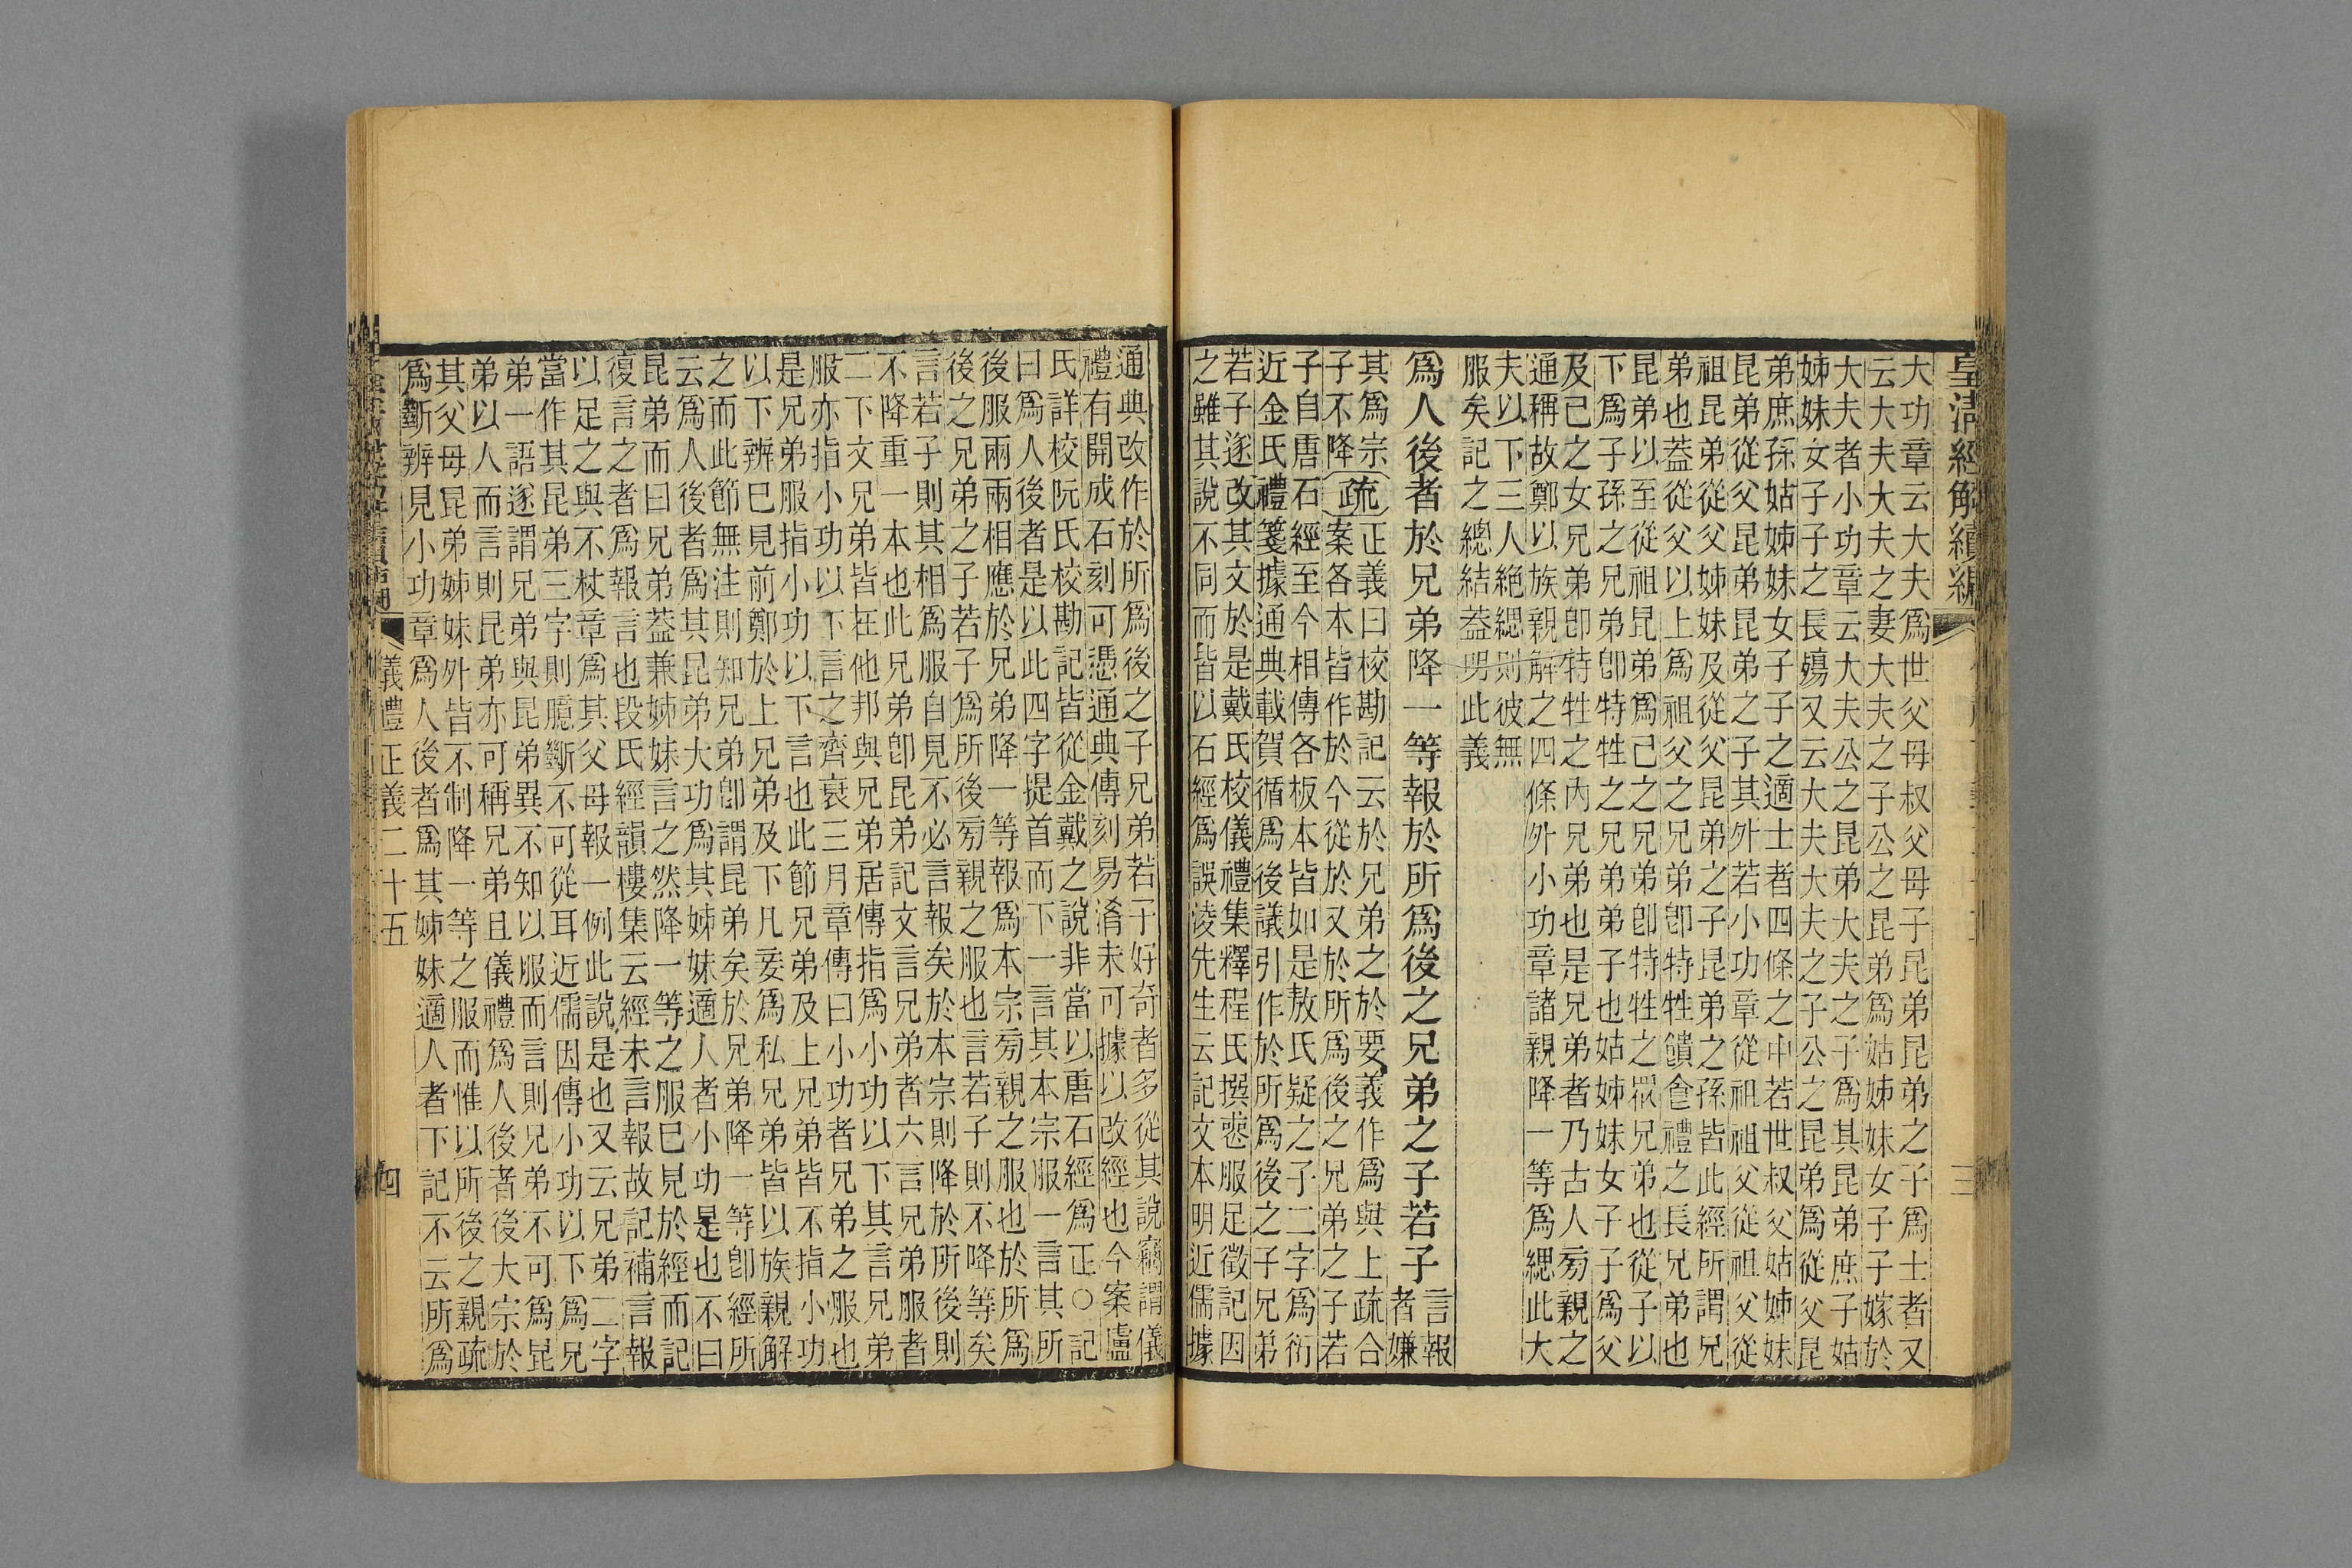 皇淸經解續編
三
大功章云大夫爲世父母叔父母子昆弟昆弟之子爲士者又
云大夫大夫之妻大夫之子公之昆弟爲姑姊妹女子子嫁於
大夫者小功章云大夫公之昆弟大夫之子爲其昆弟庶子姑
姊妹女子子之長殤又云大夫大夫之子公之昆弟爲從父昆
弟庶孫姑姊妹女子子之適士者四條之中若世叔父姑姊妹
昆弟從父昆弟昆弟之子其外若小功章從祖祖父從祖父從
祖昆弟從父姊妹及從父昆弟之子昆弟之孫皆此經所謂兄
弟也葢從父以上爲祖父之兄弟卽特牲饋食禮之長兄弟也
昆弟以至從祖昆弟爲己之兄弟卽特牲之眾兄弟也從子以
下爲子孫之兄弟卽特牲之兄弟弟子也姑姊妹女子子爲父
及己之女兄弟卽特牲之內兄弟也是兄弟者乃古人旁親之
通稱故鄭以族親解之四條外小功章諸親降一等爲緦此大
夫以下三人絕緦則彼無
服矣記之總結葢明此義
爲人後者於兄弟降一等報於所爲後之兄弟之子若子
言報
者嫌
其爲宗
子不降
疏
正義曰校勘記云於兄弟之於要義作爲與上疏合
案各本皆作於今從於又於所爲後之兄弟之子若
子自唐石經至今相傳各板本皆如是敖氏疑之子二字爲衍
近金氏禮箋據通典載賀循爲後議引作於所爲後之子兄弟
若子遂改其文於是戴氏校儀禮集釋程氏撰喪服足徵記因
之雖其說不同而皆以石經爲誤淩先生云記文本明近儒據
通典改作於所爲後之子兄弟若子好奇者多從其說竊謂儀
禮有開成石刻可憑通典傳刻易淆未可據以改經也今案盧
氏詳校阮氏校勘記皆從金戴之說非當以唐石經爲正○記
曰爲人後者是以此四字提首而下一言其本宗服一言其所
後服兩兩相應於兄弟降一等報爲本宗旁親之服也於所爲
後之兄弟之子若子爲所後旁親之服也言若子則不降等矣
言若子則其相爲服自見不必言報矣於本宗則降於所後則
不降重一本也此兄弟卽昆弟記文言兄弟者六言兄弟服者
二下文兄弟皆在他邦與兄弟居傳指爲小功以下其言兄弟
服亦指小功以下言之齊衰三月章傳曰小功者兄弟之服也
是兄弟服指小功以下言也此節兄弟及上兄弟皆不指小功
以下辨已見前鄭於上兄弟及下凡妾爲私兄弟皆以族親解
之而此節無注則知兄弟卽謂昆弟矣於兄弟降一等卽經所
云爲人後者爲其昆弟大功爲其姊妹適人者小功是也不曰
昆弟而曰兄弟葢兼姊妹言之然降一等之服已見於經而記
復言之者爲報言也段氏經韻樓集云經未言報故記補言報
以足之與不杖章爲其父母報一例此說是也又云兄弟二字
當作其昆弟三字則臆斷不可從耳近儒因傳小功以下爲兄
弟一語遂謂兄弟與昆弟異不知以服而言則兄弟不可爲昆
弟以人而言則昆弟亦可稱兄弟且儀禮爲人後者後大宗於
其父母昆弟姊妹外皆不制降一等之服而惟以所後之親疏
爲斷辨見小功章爲人後者爲其姊妹適人者下記不云所爲
儀禮正義二十五
四